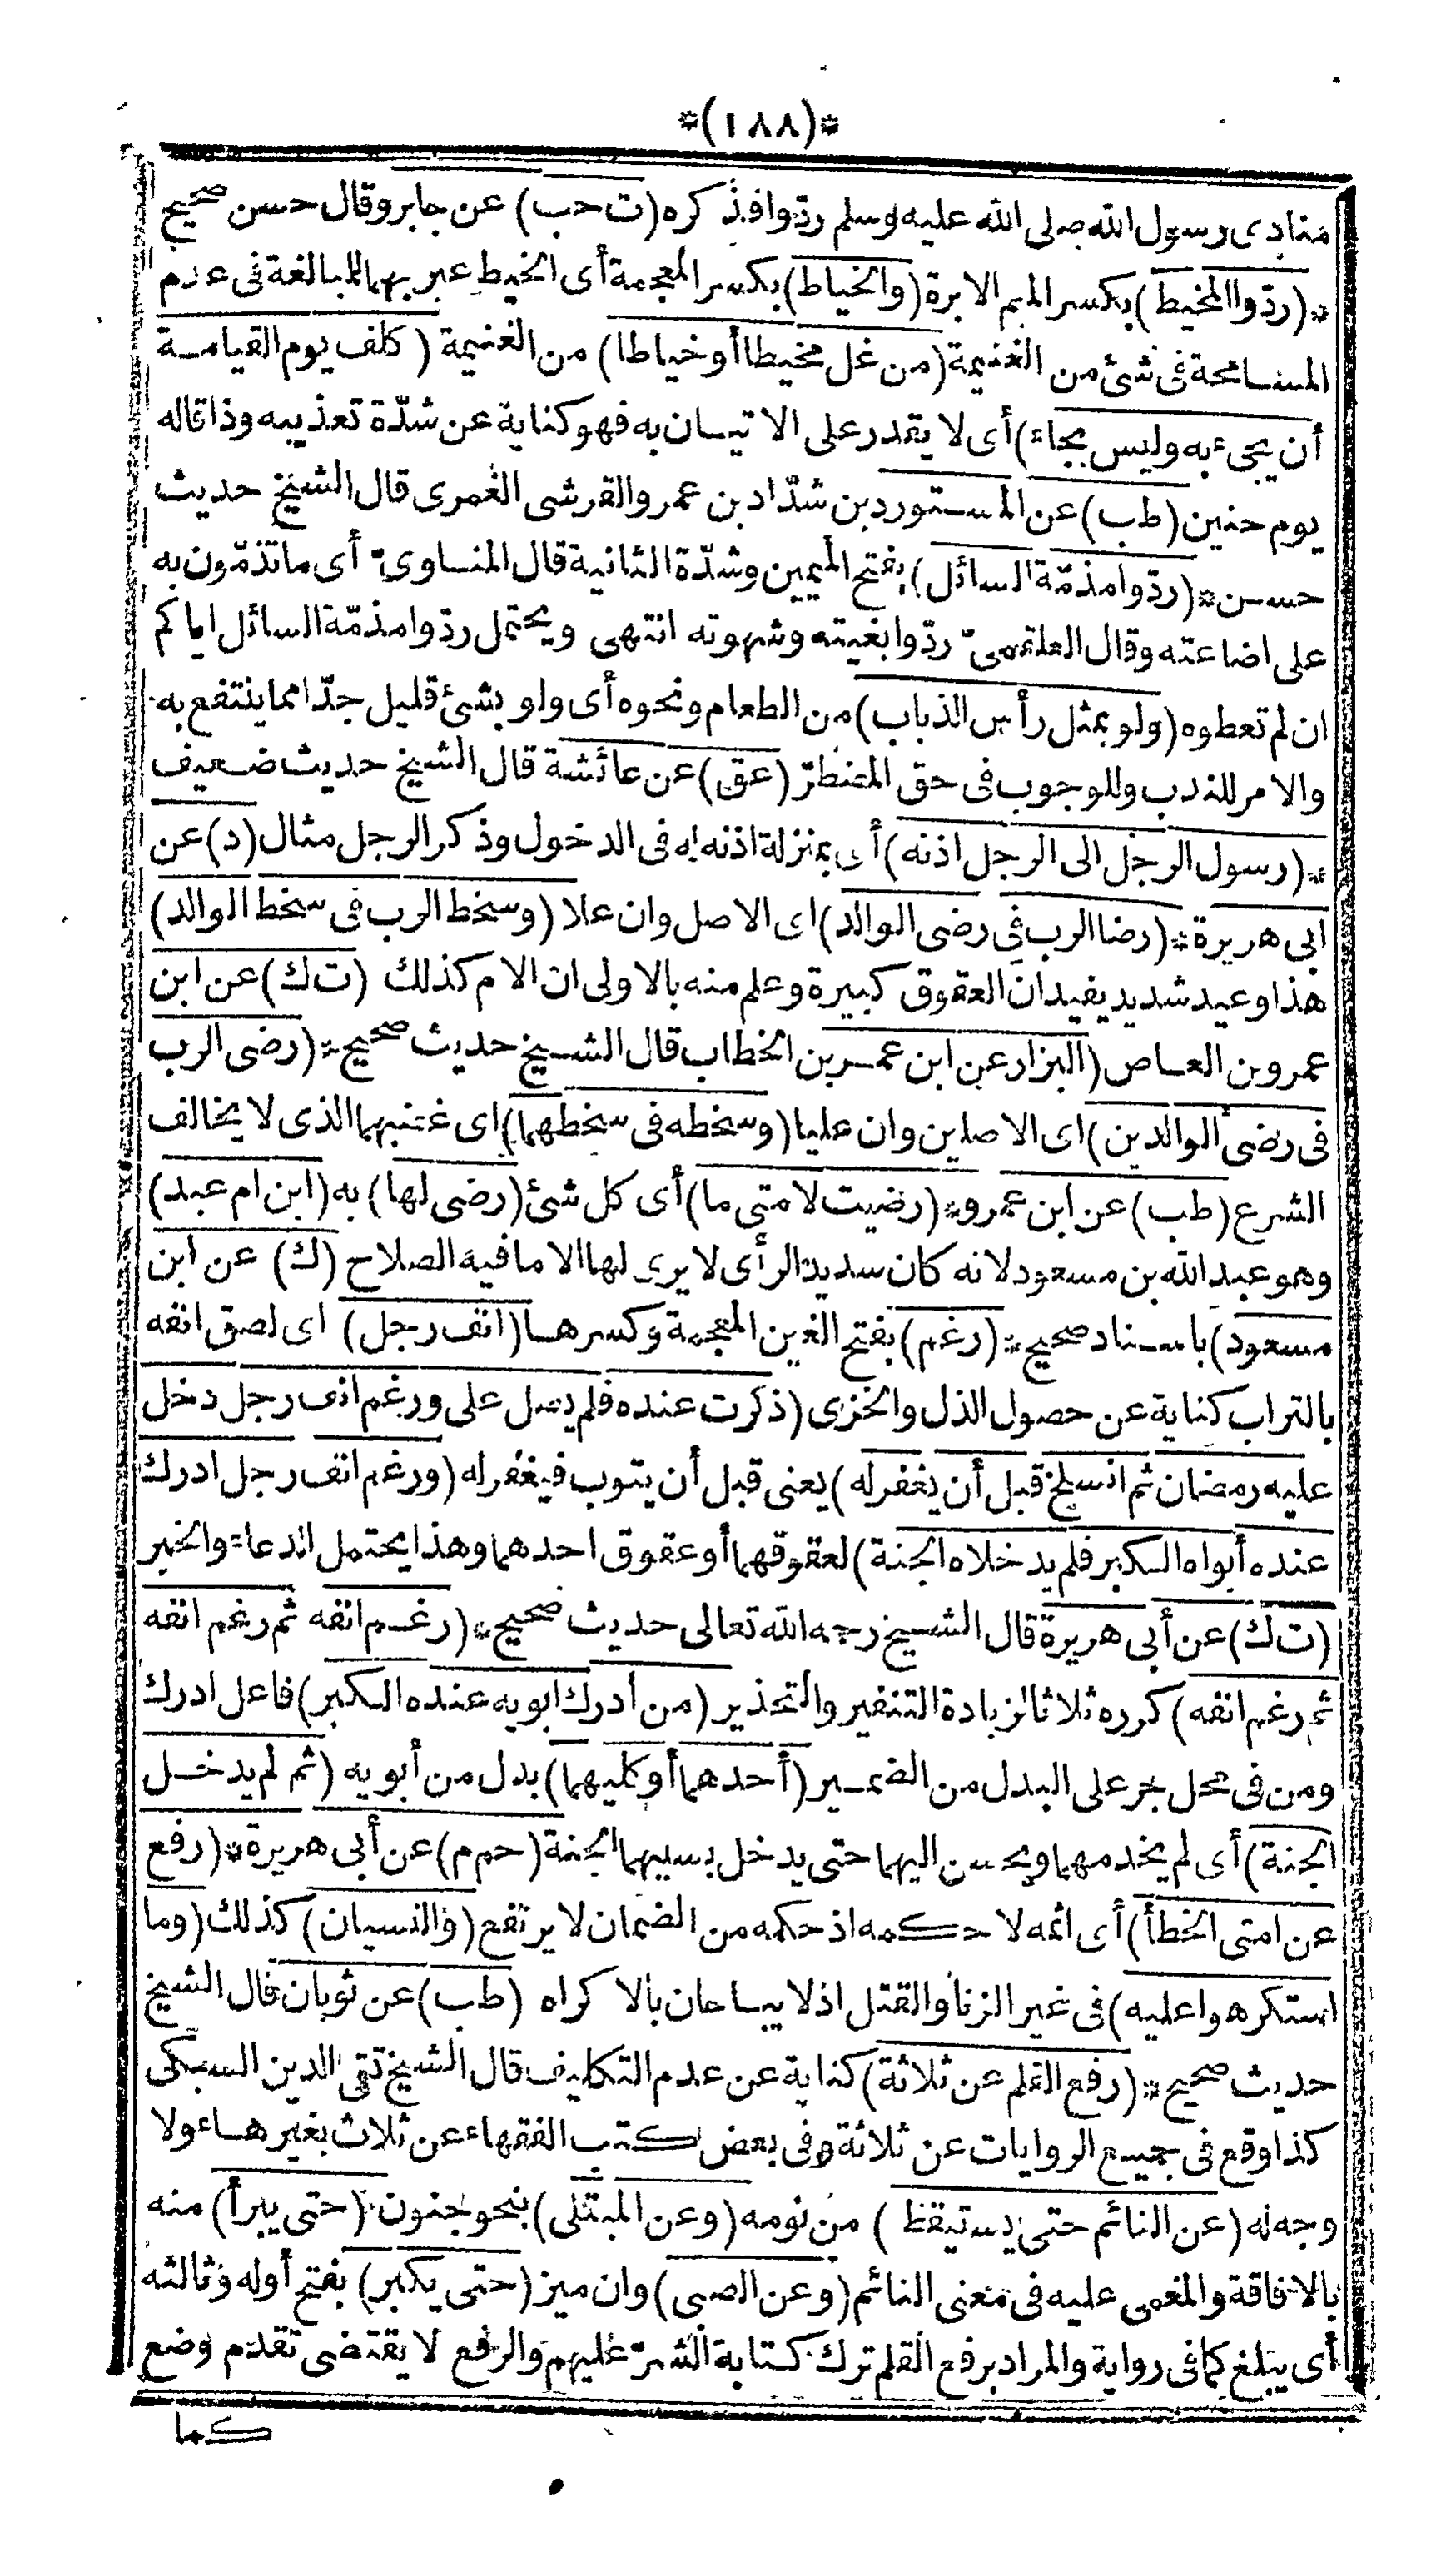 *(١٨٨)*
منادى رسول الله صلى الله عليه وسلم ردّوا فذكره (ت حب) عن جابر وقال حسن صحيح
*(ردّوا المخيط) بكسر الميم الابرة (والخياط) بكسر المعجمة أى الخيط عبر بهما للمبالغة فى عدم
المسامحة فى شئ من الغنيمة (من غل مخيطا أو خياطا) من الغنيمة (كلف يوم القيامة
أن يجىء به وليس بجاء) أى لا يقدر على الاتيان به فهو كناية عن شدّة تعذيبه وذا قاله
يوم حنين (طب) عن المستورد بن شدّاد بن عمرو القرشى الفهرى قال الشيخ حديث
حسن *(ردّوا مذمّة السائل) بفتح الميمين وشدّة الثانية قال المناوىّ أى ما تذمّون به
على اضاعته وقال العلقمىّ ردّوا بغيته وشهوته انتهى ويحتمل ردّوا مذمّة السائل اياكم
ان لم تعطوه (ولو بمثل رأس الذباب) من الطعام ونحوه أى ولو بشئ قليل جدّا مما ينتفع به
والامر للندب وللوجوب فى حق المضطرّ (عق) عن عائشة قال الشيخ حديث ضعيف
*(رسول الرجل الى الرجل اذنه) أى بمنزلة اذنه له فى الدخول وذكر الرجل مثال (د) عن
ابى هريرة *(رضا الرب فى رضى الوالد) اى الاصل وان علا (وسخط الرب فى سخط الوالد)
هذا وعيد شديد يفيد ان العقوق كبيرة وعلم منه بالاولى ان الام كذلك (ت ك) عن ابن
عمرو بن العاص (البزار عن ابن عمر بن الخطاب قال الشيخ حديث صحيح *(رضى الرب
فى رضى الوالدين) اى الاصلين وان عليا (وسخطه فى سخطهما) اى غضبهما الذى لا يخالف
الشرع (طب) عن ابن عمرو *(رضيت لامتى ما) أى كل شئ (رضى لها) به (ابن ام عبد)
وهو عبد الله بن مسعود لانه كان سديد الرأى لا يرى لها الا ما فيه الصلاح (ك) عن ابن
مسعود) باسناد صحيح *(رغم) بفتح الغين المعجمة وكسرها (انف رجل) اى لصق انفه
بالتراب كناية عن حصول الذل والخزى (ذكرت عنده فلم يصل على ورغم انف رجل دخل
عليه رمضان ثم انسلخ قبل أن يغفر له) يعنى قبل أن يتوب فيغفر له (ورغم انف رجل ادرك
عنده أبواه الكبر فلم يدخلاه الجنة) لعقوقهما أو عقوق احدهما وهذا يحتمل الدعاء والخبر
(ت ك) عن أبى هريرة قال الشيخ رحمه الله تعالى حديث صحيح *(رغم انفه ثم رغم انفه
ثم رغم انفه) كرره ثلاثا لزيادة التنفير والتحذير (من أدرك ابويه عنده الكبر) فاعل ادرك
ومن فى محل جر على البدل من الضمير (أحدهما أو كليهما) بدل من أبويه (ثم لم يدخل
الجنة) أى لم يخدمهما ويحسن اليهما حتى يدخل بسببهما الجنة (حم م) عن أبى هريرة *(رفع
عن امتى الخطأ) أى اثمه لا حكمه اذ حكمه من الضمان لا يرتفع (والنسيان) كذلك (وما
استكرهوا عليه) فى غير الزنا والقتل اذ لا يباحان بالاكراه (طب) عن ثوبان قال الشيخ
حديث صحيح *(رفع القلم عن ثلاثة) كناية عن عدم التكليف قال الشيخ تقى الدين السبكى
كذا وقع فى جميع الروايات عن ثلاثة وفى بعض كتب الفقهاء عن ثلاث بغير هاء ولا
وجه له (عن النائم حتى يستيقظ) من نومه (وعن المبتلى) بنحو جنون (حتى يبرأ) منه
بالافاقة والمغمى عليه فى معنى النائم (وعن الصبى) وان ميز (حتى يكبر) بفتح أوله وثالثه
أى يبلغ كما فى رواية والمراد برفع القلم ترك كتابة الشرّ عليهم والرفع لا يقتضى تقدم وضع
كما